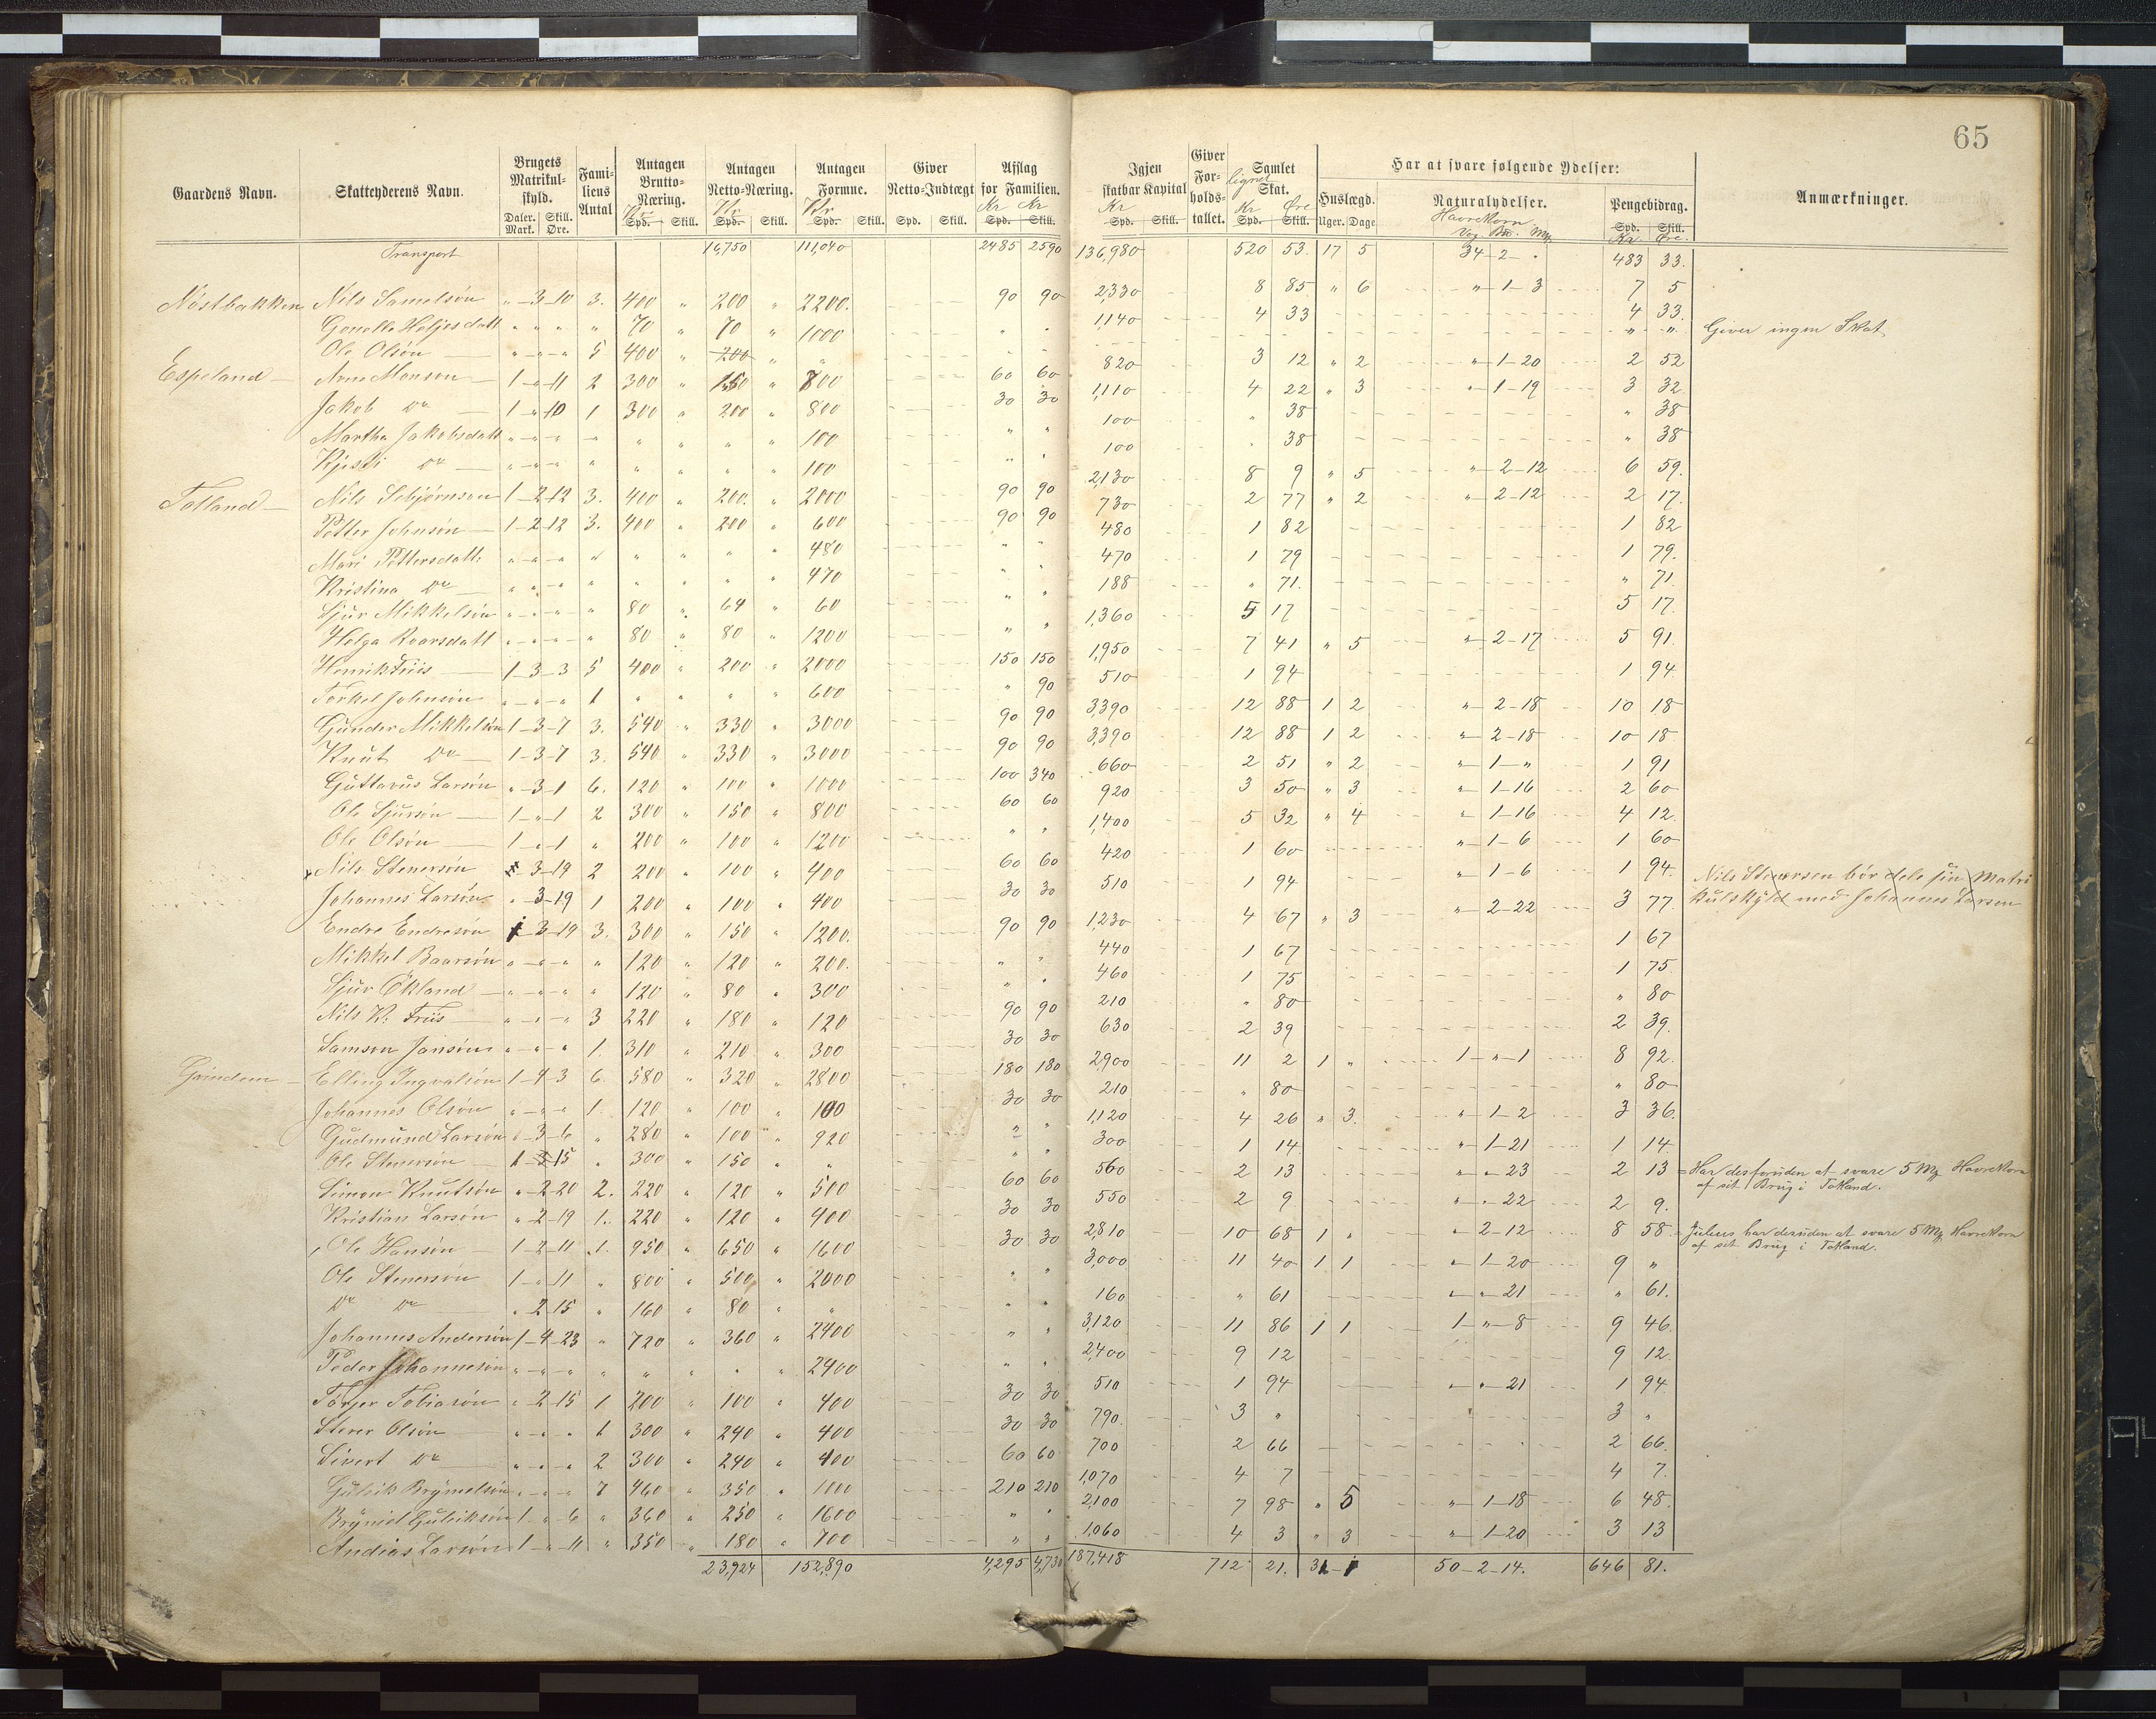 65
Gaardens Navn. Skatteyderens Navn. Brugets Matrikulskyld. Daler. Mark. Skill. Øre. Familiens Antal Antagen Brutto-Næring. Kr Spd. Skill. Antagen Netto-Næring. Kr Spd. Skill. Antagen Formue. Kr Spd. Skill. Giver Netto-Indtægt Spd. Skill. Afslag for Familien. Kr Kr Spd. Skill. Igjen skatbar Kapital Kr Spd. Skill. Giver Forholdstallet. Samlet lignet Skat. Kr Øre Spd. Skill. Har at svare følgende Ydelser: Huslægd. Uger. Dage Naturalydelser. Havrekorn Vog. Bn. Mk Pengebidrag. Spd. Skill. Kr Øre. Anmærkninger.
Transport 16,750 111,040 2485 2590 136,980 520 53. 17 5 34-2-" 483 33.
Nøstbakken Nils Samelsøn "-3-10 3. 400 " 200 " 2200. 90 90 2,330 8 85 " 6 "-1-3 7 5
" - " - " " 70 " 70 " 1000 " " 1,140 4 33 4 33.
Ole Olsøn " - " - " 5 400 " 200 " " " " " " Giver ingen Skat
Espeland Arne Monson 1-"-11 2 300 " 150 " 800 60 60 820 3 12 " 2 "-1-20 2 52
Jakob Do 1-"-10 1 300 " 200 " 800 30 30 1,110 4 22 " 3 "-1-19 3 32
Martha Jakobsdatt " - " - " " " " " " 100 " " 100 " 38 " 38
Kjesti Do " - " - " " " " " " 100 " " 100 " 38 " 38
Totland Nils Sebjørnson 1-2-12 3. 400 " 200. " 2000 90 90 2,130 8 9 " 5 "-2-12 6 59.
Petter Johnsøn 1-2-12 3. 400 " 200 " 600 90 90 730 2 77 " 2 "-2-12 2 17.
Mari Pettersdatt: " - " - " " " " " " 480 " " 480 1 82 1 82
Kristina Do " - " - " " " " " " 470 " " 470 1 79 1 79.
Sjur Mikkelsøn " - " - " " 80 " 64 " 60 " " 188 " 71. " 71
Helga Roarsdatt " - " - " " 80 " 80 " 1200 " " 1,360 5 17 5 17.
Henrik Friis 1-3-3 5 400 " 200 " 2000 150 150 1,950 7 41 " 5 "-2-17 5 91.
Torkel Johnsøn " - " - " 1 " " " " 600 " 90 510 1 94 1 94.
Gunder Mikkelsøn 1-3-7 3. 540 " 330 " 3000 90 90 3,390 12 88 1 2 "-2-18 10 18
Knut Do 1-3-7 3. 540 " 330 " 3000 90 90 3,390 12 88 1 2 "-2-18 10 18
Guttorus Larsøn "-3-1 6. 120 " 100 " 1000 100 340 660 2 51 " 2 "-1-" 1 91
Ole Sjursøn 1-"-1 2 300 " 150 " 800 60 60 920 3 50 " 3 "-1-16 2 60
Ole Olsøn 1-"-1 " 200 " 100 " 1200 " " 1,400 5 32 " 4 "-1-16 4 12.
Nils Stenersøn "-3-19 2 200 " 100 " 400 60 60 420 1 60 "-1-6 1 60
Johannes Larsøn "-3-19 1 200 " 100 " 400 30 30 510 1 94 "-1-6 1 94. Nils Stenersen bør dele sin Matri
Endre Endresøn 1-3-19 3. 300 " 150 " 1200. 90 90 1,230 4 67 " 3 "-2-22 3 77. kulskyld med Johannes Larsen
Mikkel Baarsøn " - " - " " 120 " 120 " 200. " " 440 1 67 1 67
Sjur Økland " - " - " " 120 " 80 " 300 " " 460 1 75 1 75.
Nils K. Friis " - " - " 3 220 " 180 " 120 90 90 210 " 80 " 80
Samson Jansøn " - " - " 1. 310 " 210 " 300 30 30 630 2 39 2 39.
Grindem Elling Ingvalsøn 1-4-3 6. 580 " 320 " 2800 180 180 2,900 11 2 1 " 1-"-1 8 92.
Johannes Olsøn " - " - " 1. 120 " 100 " 100 30 30 210 " 80 " 80
Gudmund Larsøn "-3-6 " 280 " 100 " 920 " " 1,120 4 26 " 3. "-1-2 3 36.
Ole Stenersøn 1-3-15 " 300 " 150 " " " " 300 1 14 "-1-21 1 14.
Simon Knutsøn "-2-20 2. 220 " 120 " 500 60 60 560 2 13 "-"-23 2 13 = Har desforuden at svare 5 Mk Havrekorn
af sit Brug i Totland.
Kristian Larsøn "-2-19 1. 220 " 120 " 400 30 30 550 2 9 "-"-22 2 9.
Ole Hansøn 1-2-11 1. 950 " 650 " 1600 30 30 2,810 10 68 1 " "-2-12 8 58. Julius har desuden at svare 5 Mk Havrekorn
af sit Brug i Totland.
Ole Stenersøn 1-"-11 " 800 " 500 " 2000 " " 3,000 11 40 1 1 "-1-20 9 "
Do Do "-2-15 " 160 " 80 " " " " 160 " 61 "-"-21 " 61.
Johannes Andersøn 1-4-23 " 720 " 360 " 2400 " " 3,120 11 86 1 1 1-"-8 9 46.
Peder Johannesøn " - " - " " " " " " 2400 " " 2,400 9 12 9 12.
Torger Tobiasøn "-2-15 1 200 " 100 " 400 30 30 510 1 94 "-"-21 1 94
Stener Olsøn " - " - " 1 300 " 240 " 400 30 30 790. 3 " 3 "
Sivert Do " - " - " 2 300 " 240 " 400 60 60 700 2 66 2 66.
Gulrik Brynielsøn " - " - " 7 460 " 350 " 1000 210 210 1,070 4 7 4 7.
Bryniel Gulriksøn 1-"-6 " 360 " 250 " 1600 " " 2,100 7 98 " 5 "-1-18 6 48.
Andias Larsøn 1-"-11 " 350 " 180 " 700 " " 1,060 4 3 " 3 "-1-20 3 13
23,924 152,890 4,295 4,730 187,418 712 21. 31-1 50-2-14. 646 81.